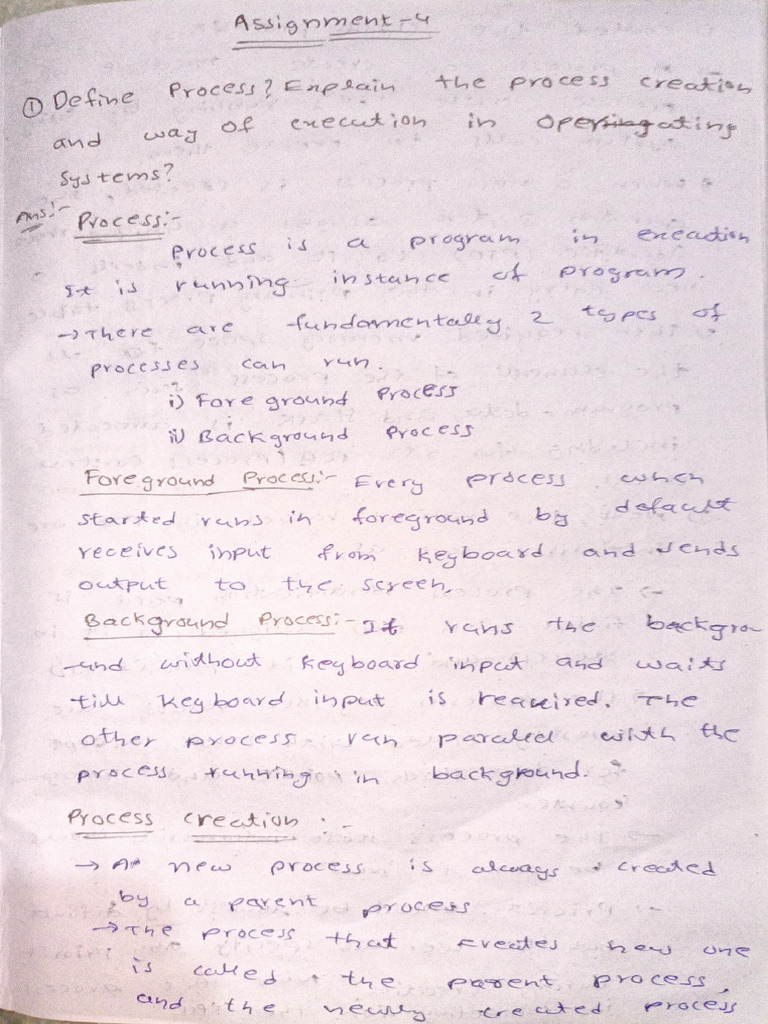 Assignment-4
① Define Process? Explain the process creation
and way of execution in Operating
Systems?
Ans:- Process:-
Process is a program in execution
It is running instance of program.
→ There are fundamentally 2 types of
processes can run.
i) Foreground Process
ii) Background Process
Foreground Process:- Every process when
started runs in foreground by default
receives input from keyboard and sends
output to the screen.
Background Process:- It runs the backgro-
-und without keyboard input and waits
till keyboard input is required. The
other process run parallel with the
process running in background.
Process creation :-
→ A new process is always created
by a parent process
→ The process that creates new one
is called the parent process,
and the newly created process